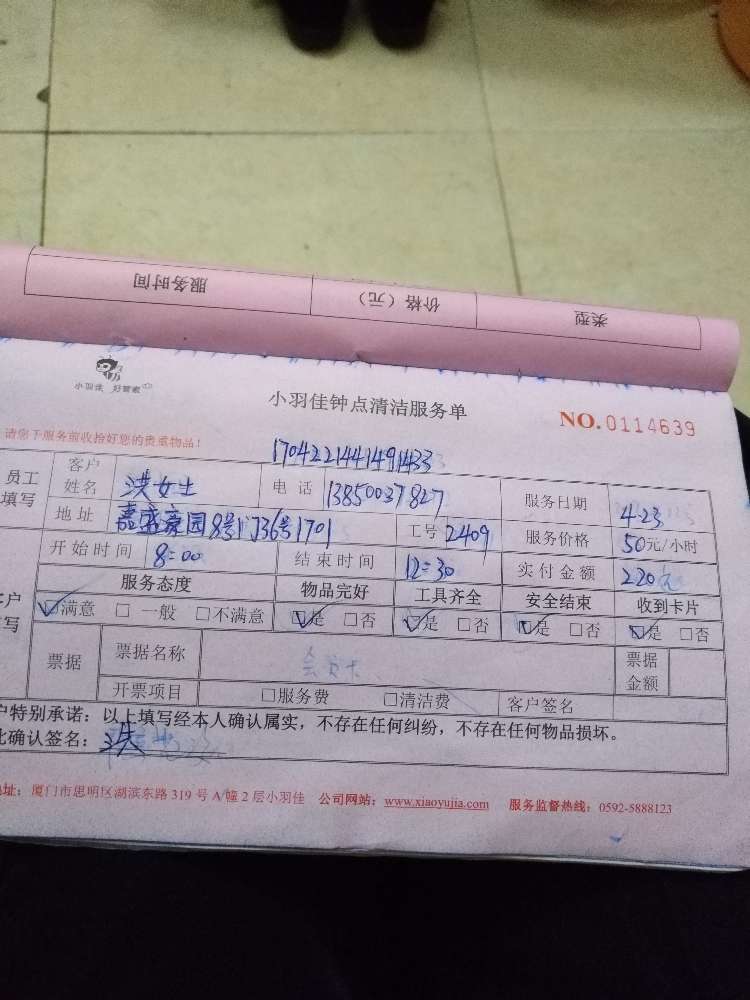 服务时间 价格（元） 类型
小羽佳 好管家
小羽佳钟点清洁服务单 NO.0114639
请您下服务前收拾好您的贵重物品！
1704221441491433
员工填写 客户姓名 洪女士 电话 13850037827 服务日期 4.23
地址 嘉盛豪园8号门36号1701 工号 2409 服务价格 50元/小时
开始时间 8:00 结束时间 12:30 实付金额 220元
服务态度 物品完好 工具齐全 安全结束 收到卡片
☑满意 □一般 □不满意 ☑是 □否 ☑是 □否 ☑是 □否 ☑是 □否
票据 票据名称 会员卡 票据金额
开票项目 □服务费 □清洁费 客户签名
户特别承诺：以上填写经本人确认属实，不存在任何纠纷，不存在任何物品损坏。
此确认签名：洪
地址：厦门市思明区湖滨东路 319 号 A 幢 2 层小羽佳 公司网站：www.xiaoyujia.com 服务监督热线：0592-5888123